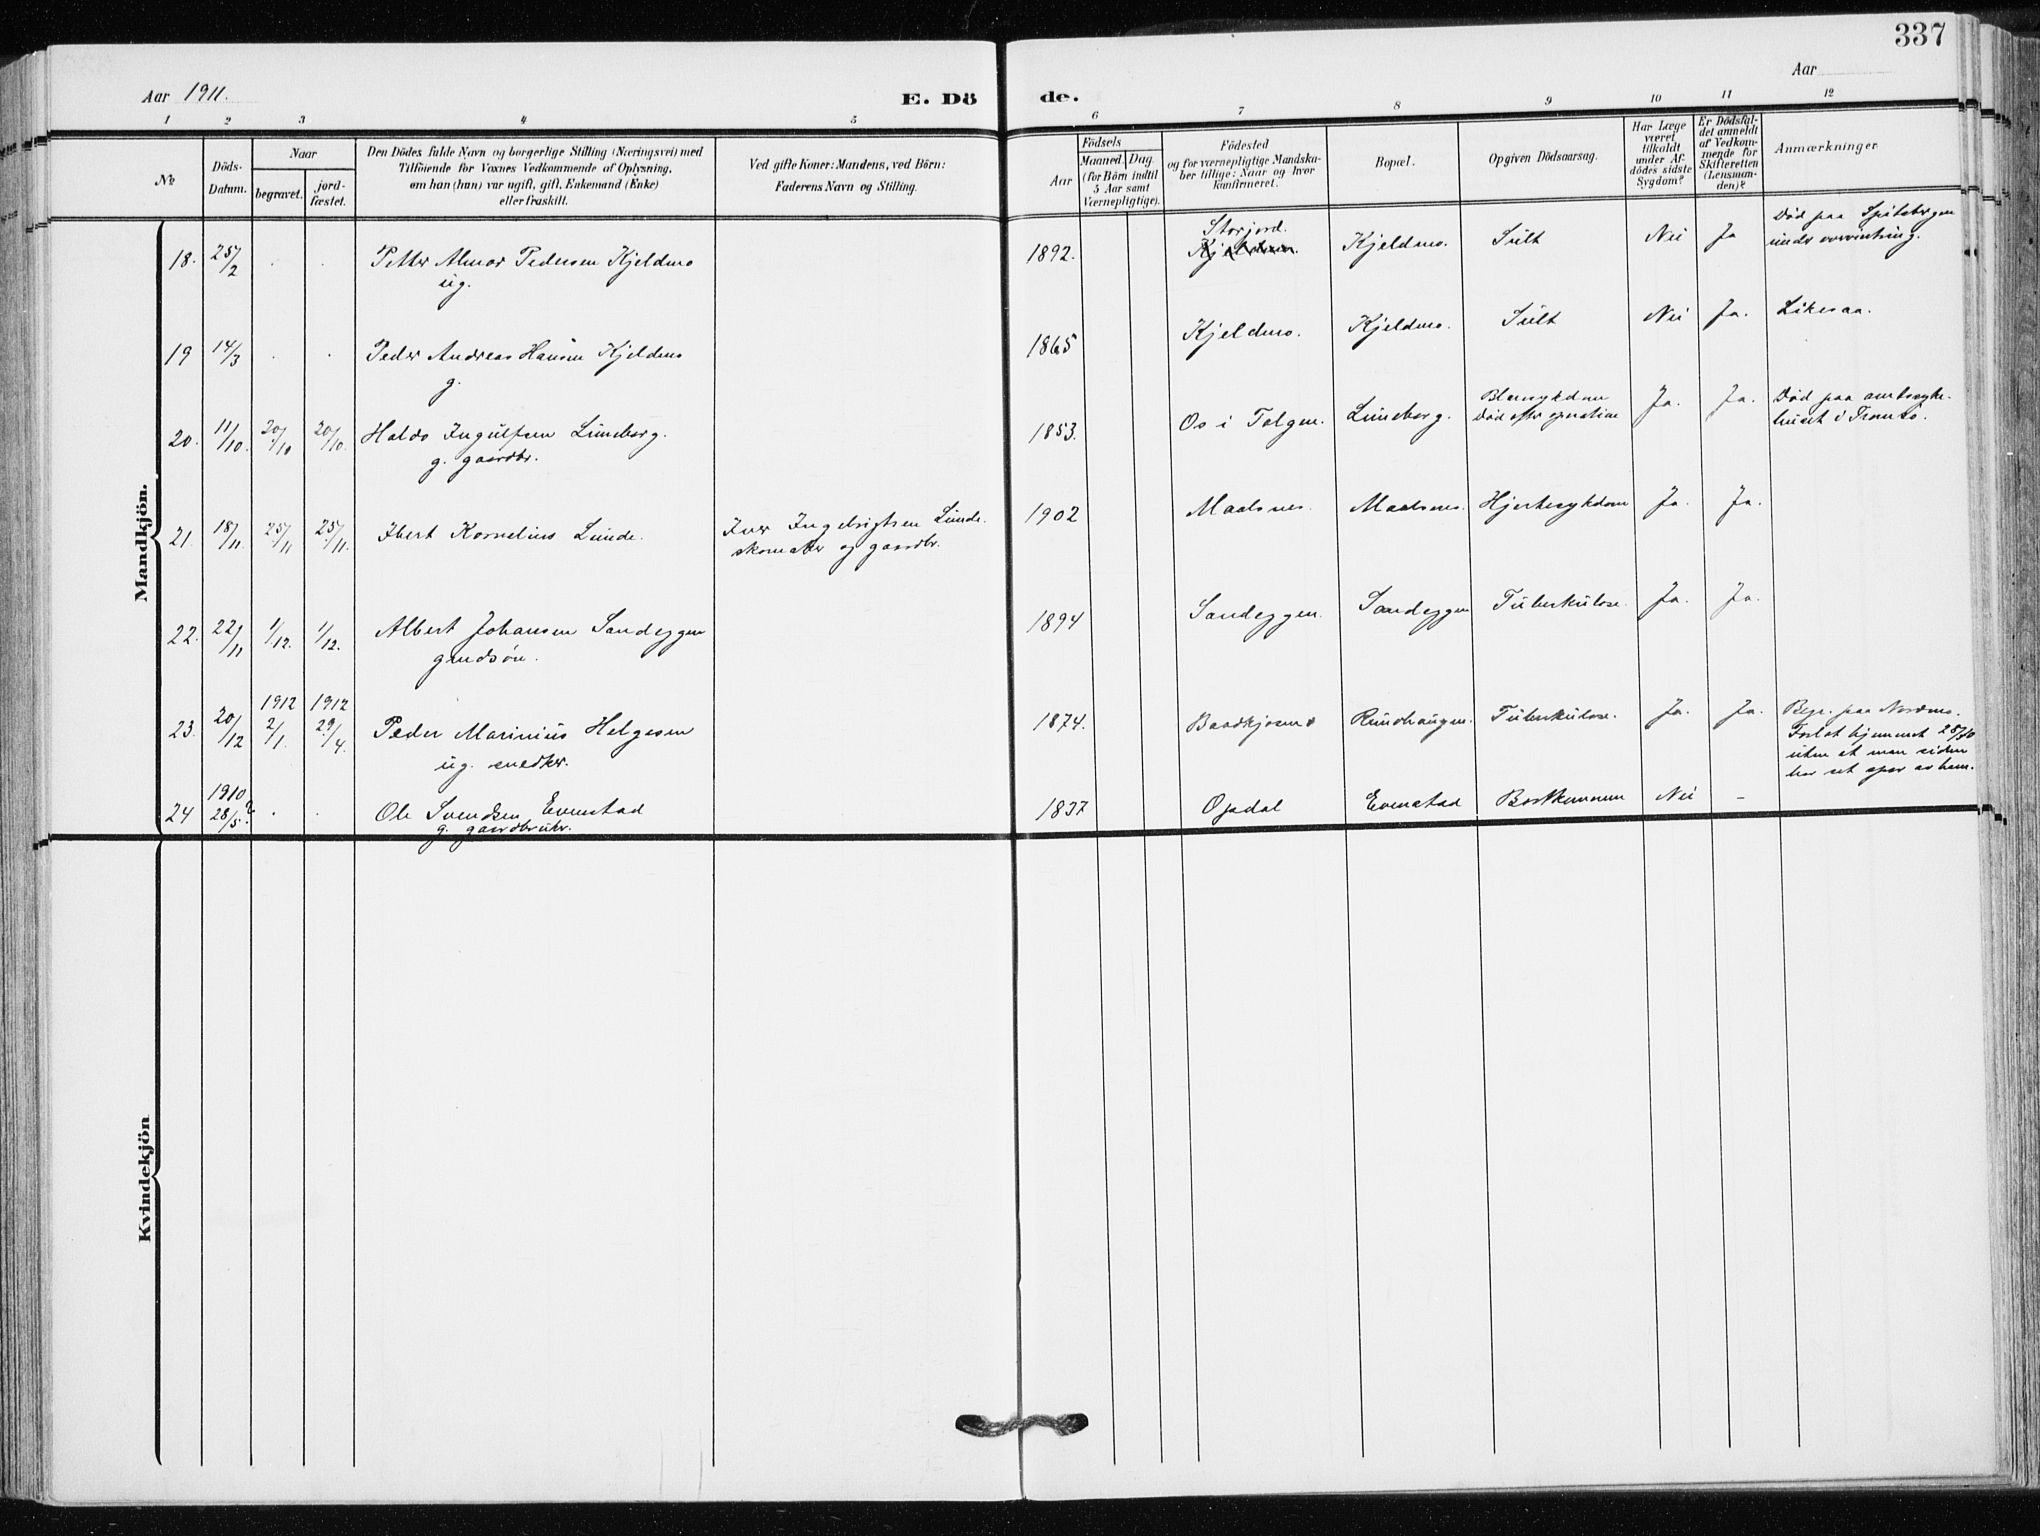 337
Aar 1911.
E. Dö de.
Aar
1 2 3 4 5 6 7 8 9 10 11 12
№
Döds-
Datum.
Naar
begravet.
jord-
fæstet.
Den Dödes fulde Navn og borgerlige Stilling (Næringsvei) med
Tilföiende for Voxnes Vedkommende af Oplysning,
om han (hun) var ugift, gift, Enkemand (Enke)
eller fraskilt.
Ved gifte Koner: Mandens, ved Börn:
Faderens Navn og Stilling.
Födsels
Aar
Maaned. Dag.
(for Börn indtil
5 Aar samt
Værnepligtige).
Födested
og for værnepligtige Mandska-
ber tillige: Naar og hvor
konfirmeret.
Bopæl.
Opgiven Dödsaarsag.
Har Læge
været
tilkaldt
under Af-
dödes sidste
Sygdom?
Er Dödsfal-
det anmeldt
af Vedkom-
mende for
Skifteretten
(Lensman-
den)?
Anmærkninger
Mandkjön.
18. 25/2 . . Petter Almar Pedersen Kjeldmo
ug.
1892. Storjord. Kjeldmo. Sult Nei Ja Död paa Spitsbergen
under overvintring.
19 14/3 . . Peder Andreas Hansen Kjeldmo
g.
1865 Kjeldmo. Kjeldmo. Sult Nei Ja. Likesaa.
20. 11/10. 20/10 20/10. Haldo Ingulfsen Luneborg.
g. gaardbr.
1853. Os i Tolgen. Luneborg. Blæresykdom
Död efter operation Ja. Ja. Död paa amtssyke-
huset i Tromsö.
21. 18/11. 25/11 25/11. Ibert Kornelius Lunde. Iver Ingebrigtsen Lunde.
skomaker og gaardbr.
1902 Maalsnes. Maalsnes. Hjertesykdom Ja. Ja.
22. 22/11 1/12. 1/12. Albert Johansen Sandeggen
grudsön.
1894 Sandeggen. Sandeggen Tuberkulose. Ja. Ja.
23. 20/12 1912 2/1. 1912 29/4. Peder Marinius Helgesen
ug. snedker.
1874. Baadkjosmo Rundhaugen. Tuberkulose. Ja. Ja. Begr. paa Nordmo.
24 1910 28/5 ? . . Ole Svendsen Evenstad
g. gaardbruker.
1837 Opdal Evenstad Bortkommen Nei - Forlot hjemmet 28/5 10
uten at man siden
har set spor av ham.
Kvindekjön